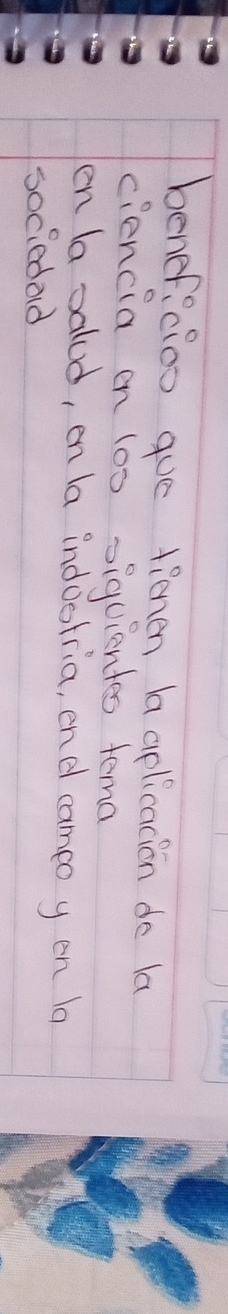 beneficios que tienen la aplicación de la
ciencia en los siguientes tema
en la salud, en la industria, en el campo y en la
sociedad